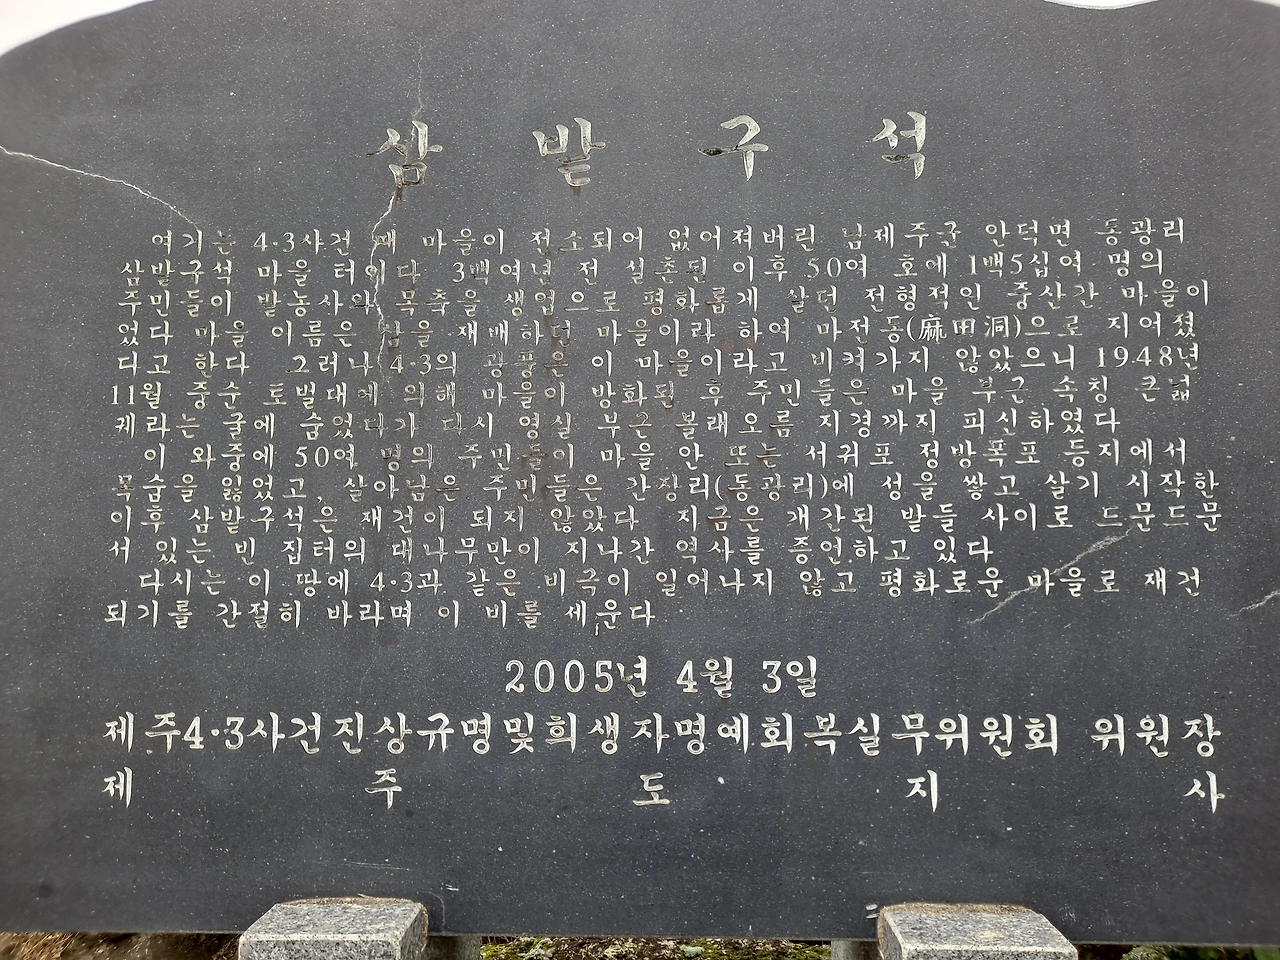 삼밭구석
여기는 4·3사건 때 마을이 전소되어 없어져버린 남제주군 안덕면 동광리
삼밭구석 마을 터이다 3백여년 전 설촌된 이후 50여 호에 1백5십여 명의
주민들이 밭농사와 목축을 생업으로 평화롭게 살던 전형적인 중산간 마을이
었다 마을 이름은 삼을 재배하던 마을이라 하여 마전동(麻田洞)으로 지어졌
다고 한다 그러나 4·3의 광풍은 이 마을이라고 비켜가지 않았으니 1948년
11월 중순 토벌대에 의해 마을이 방화된 후 주민들은 마을 부근 속칭 큰넓
궤라는 굴에 숨었다가 다시 영실 부근 볼래오름 지경까지 피신하였다
이 와중에 50여 명의 주민들이 마을 안 또는 서귀포 정방폭포 등지에서
목숨을 잃었고, 살아남은 주민들은 간장리(동광리)에 성을 쌓고 살기 시작한
이후 삼밭구석은 재건이 되지 않았다 지금은 개간된 밭들 사이로 드문드문
서 있는 빈 집터의 대나무만이 지나간 역사를 증언하고 있다
다시는 이 땅에 4·3과 같은 비극이 일어나지 않고 평화로운 마을로 재건
되기를 간절히 바라며 이 비를 세운다
2005년 4월 3일
제주4·3사건진상규명및희생자명예회복실무위원회 위원장
제주도지사